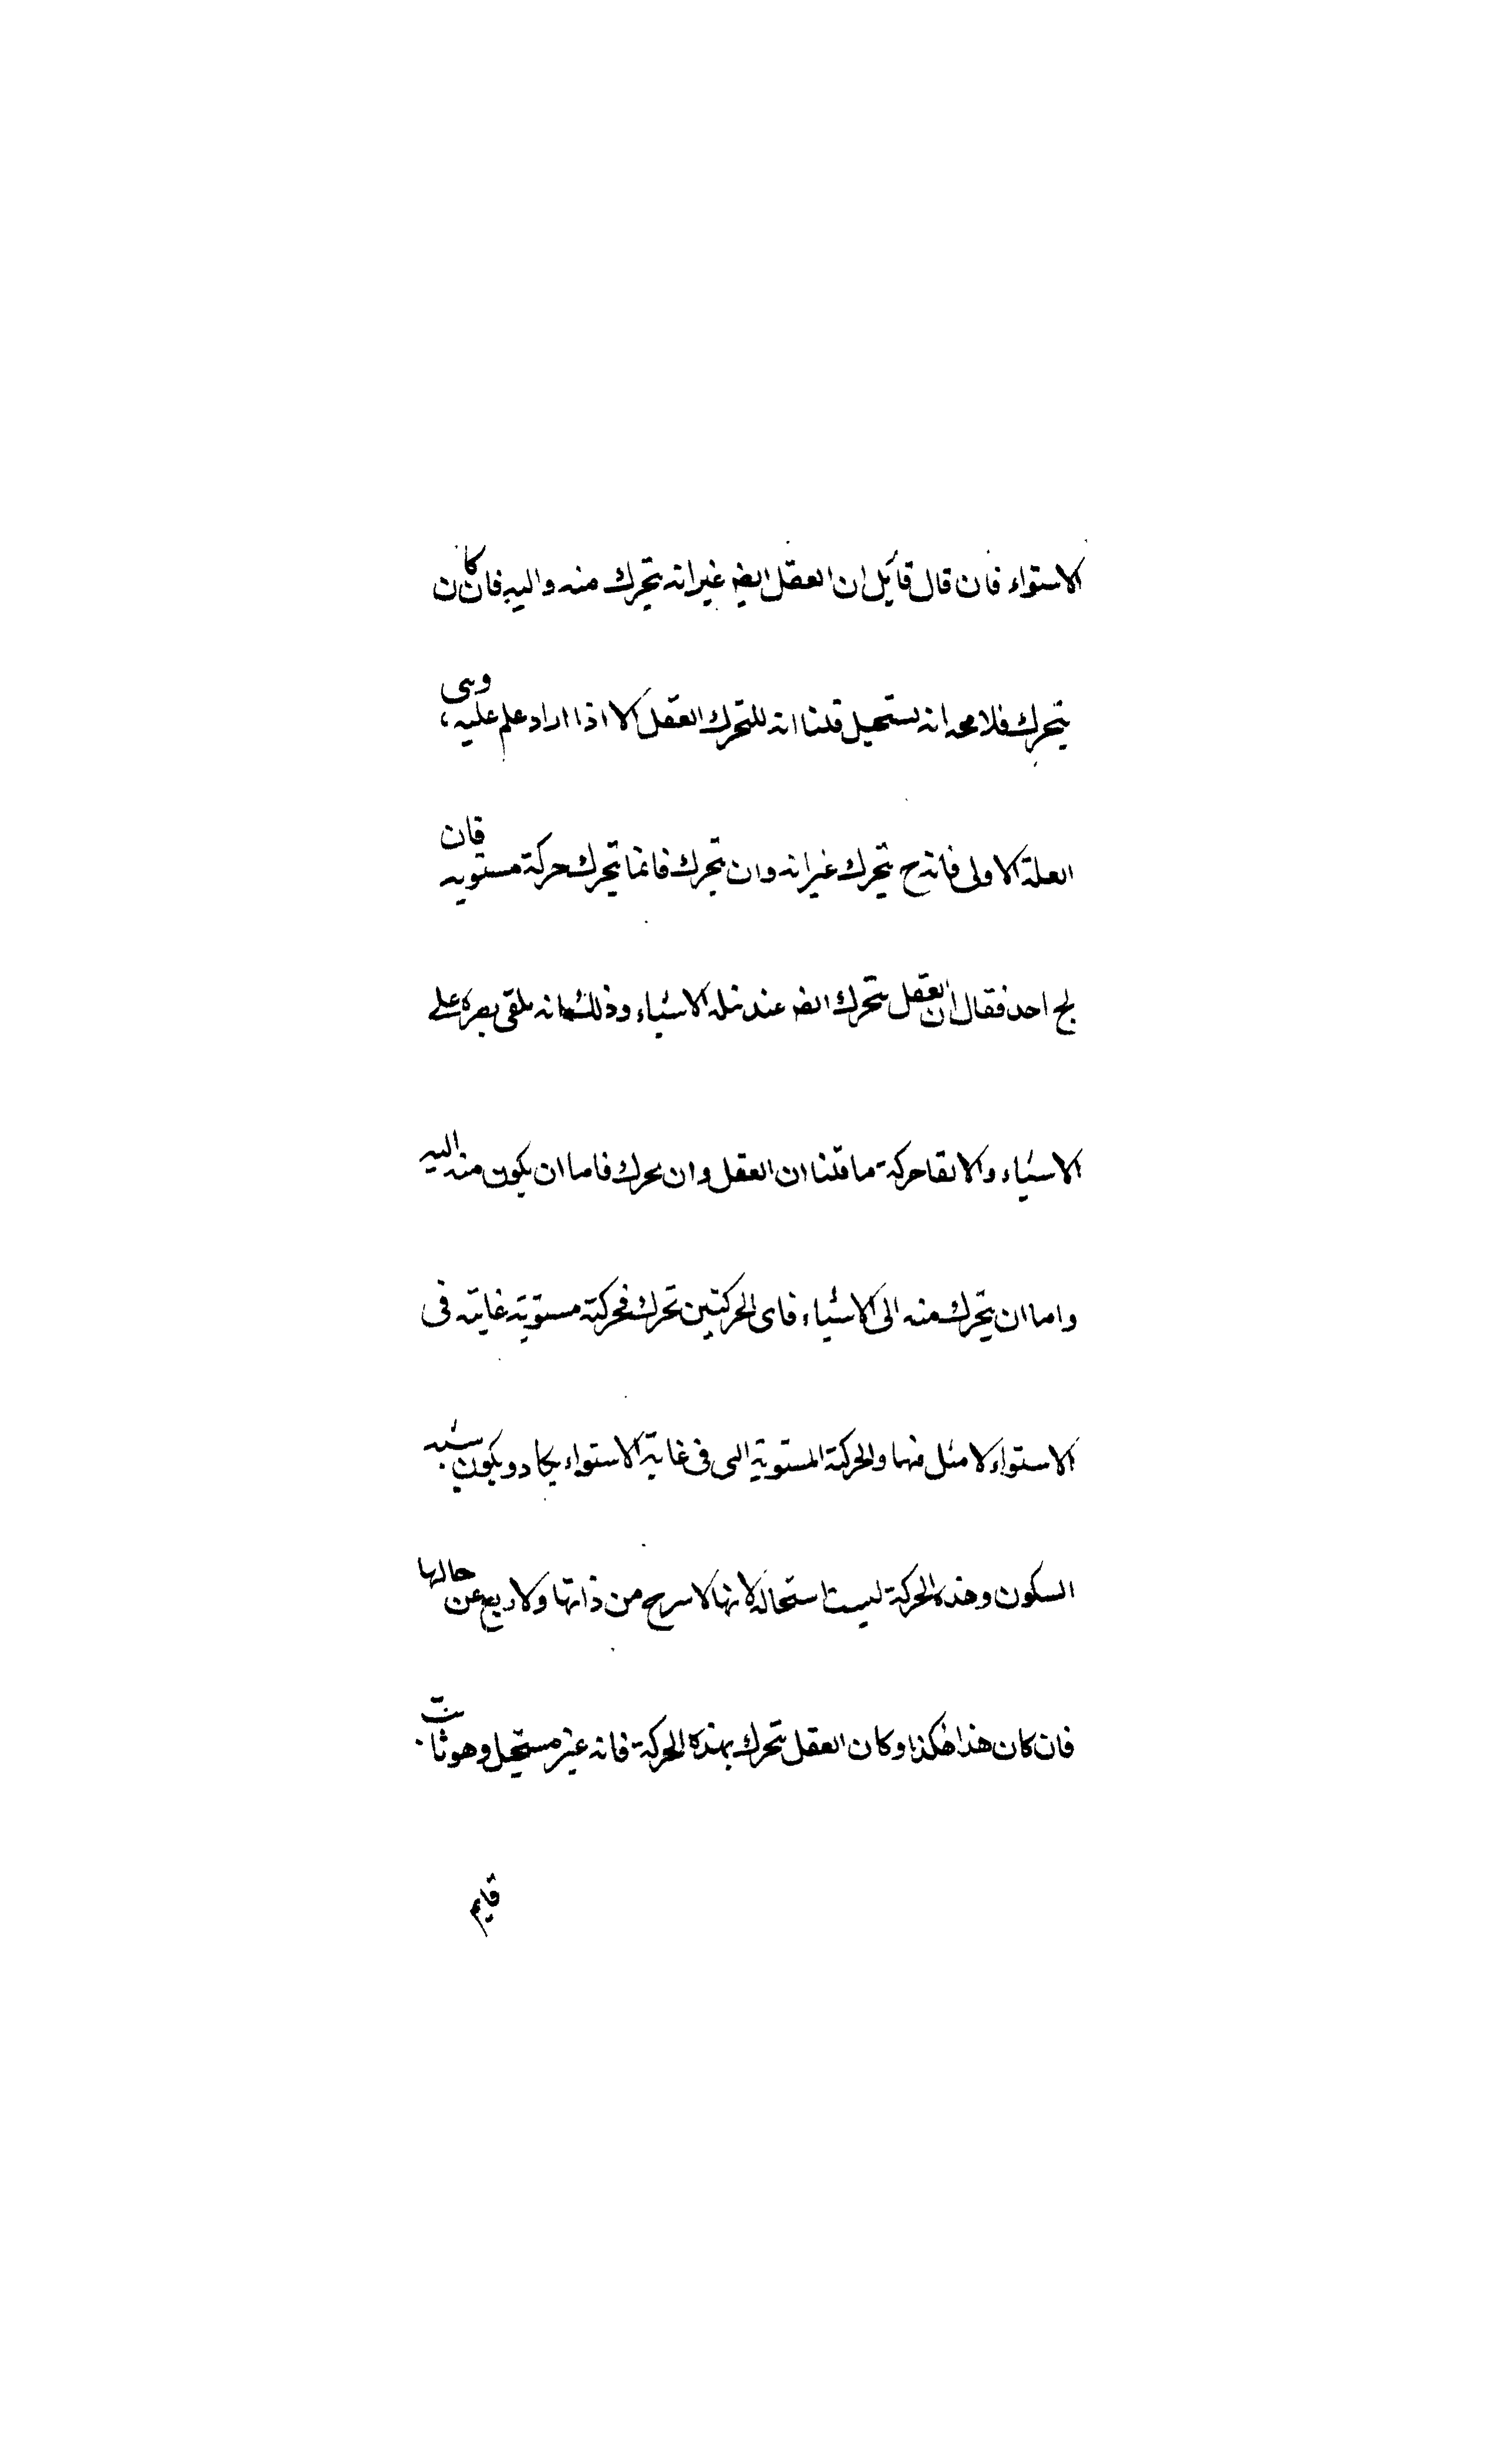 الاستواء فان قال قائل ان العقل ايضہ غير انه يتحرك منه واليه فان كان
يتحرك فلا محه انه يستحيل قلنا انه لا يتحرك العقل الا اذا اراد علم علته وهى
العلة الاولى فانه ح يتحرك غير انه وان تحرك فانما يتحرك حركة مستويه فان
لج احد فقال ان العقل يتحرك ايضہ عند نيله الاشياء وذلك انه يلقى بصره على
الاشياء والالقا حركة ما قلنا ان العقل وان تحرك فاما ان يكون منه اليه
واما ان يتحرك منه الى الاشياء فاى الحركتين تحرك فحركته مستوية غاية فى
الاستواء لا ميل فيها والحركة المستوية التى فى غاية الاستواء يكاد ويكون شبه
السكون وهذه الحركة ليست استحالة لانها لا تبرح من ذاتها ولا تريع عن حالها
فان كان هذا هكذا وكان العقل يتحرك بهذه الحركة فانه غير مستحيل وهو ثابت
قايم